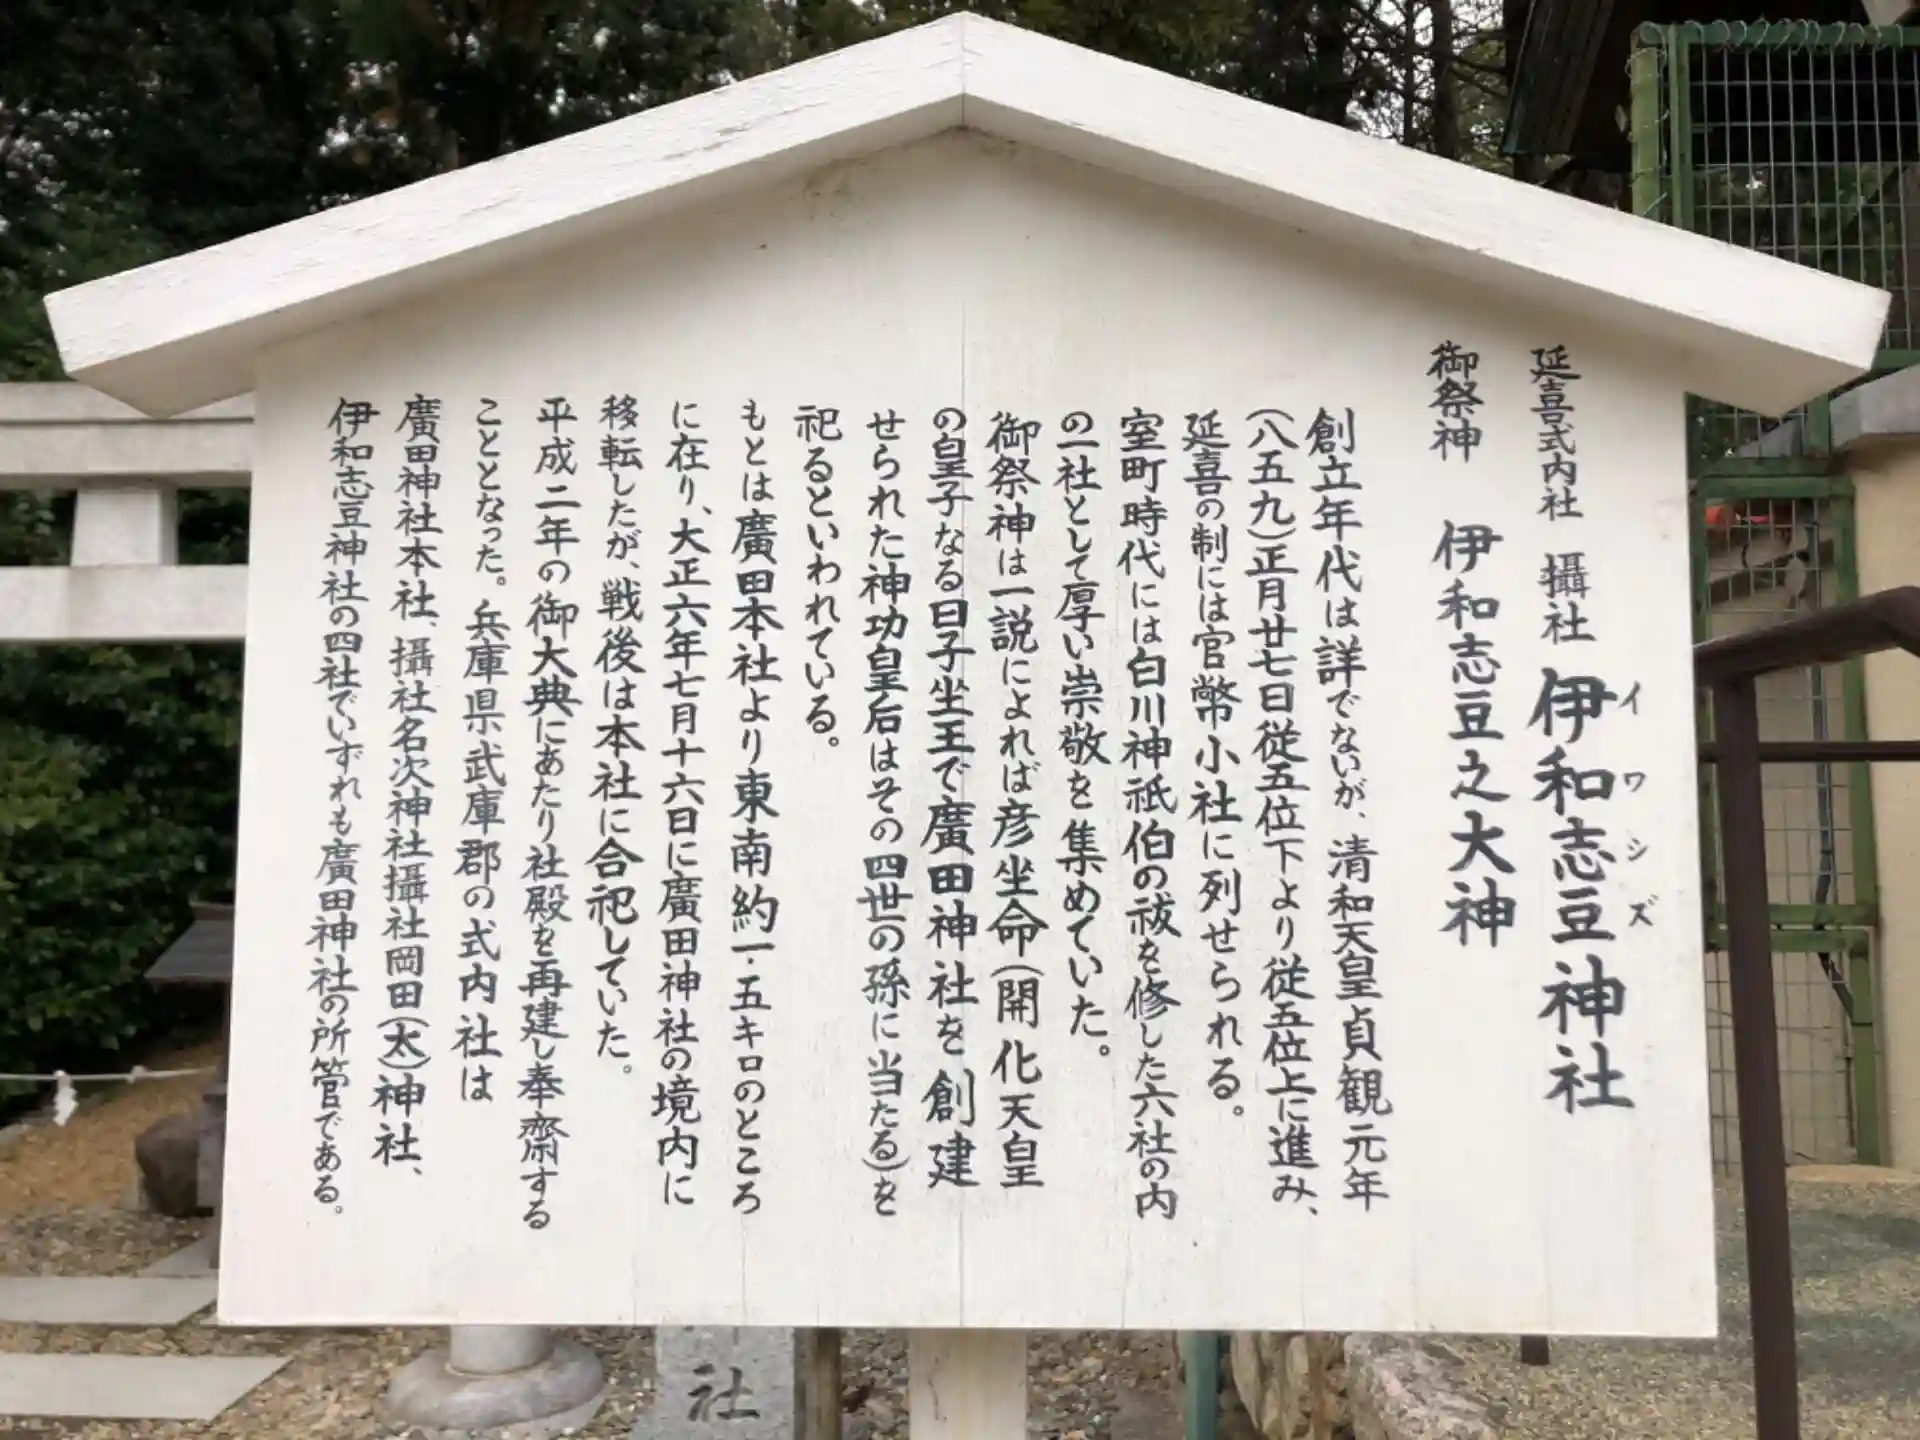 延喜式内社 攝社 伊和志豆神社
イワシズ
御祭神 伊和志豆之大神
創立年代は詳でないが、清和天皇貞観元年
(八五九)正月廿七日従五位下より従五位上に進み、
延喜の制には官幣小社に列せられる。
室町時代には白川神祇伯の祓を修した六社の内
の一社として厚い崇敬を集めていた。
御祭神は一説によれば彦坐命(開化天皇
の皇子なる日子坐王で廣田神社を創建
せられた神功皇后はその四世の孫に当たる)を
祀るといわれている。
もとは廣田本社より東南約一・五キロのところ
に在り、大正六年七月十六日に廣田神社の境内に
移転したが、戦後は本社に合祀していた。
平成二年の御大典にあたり社殿を再建し奉齋する
こととなった。兵庫県武庫郡の式内社は
廣田神社本社、攝社名次神社攝社岡田(太)神社、
伊和志豆神社の四社でいずれも廣田神社の所管である。
社